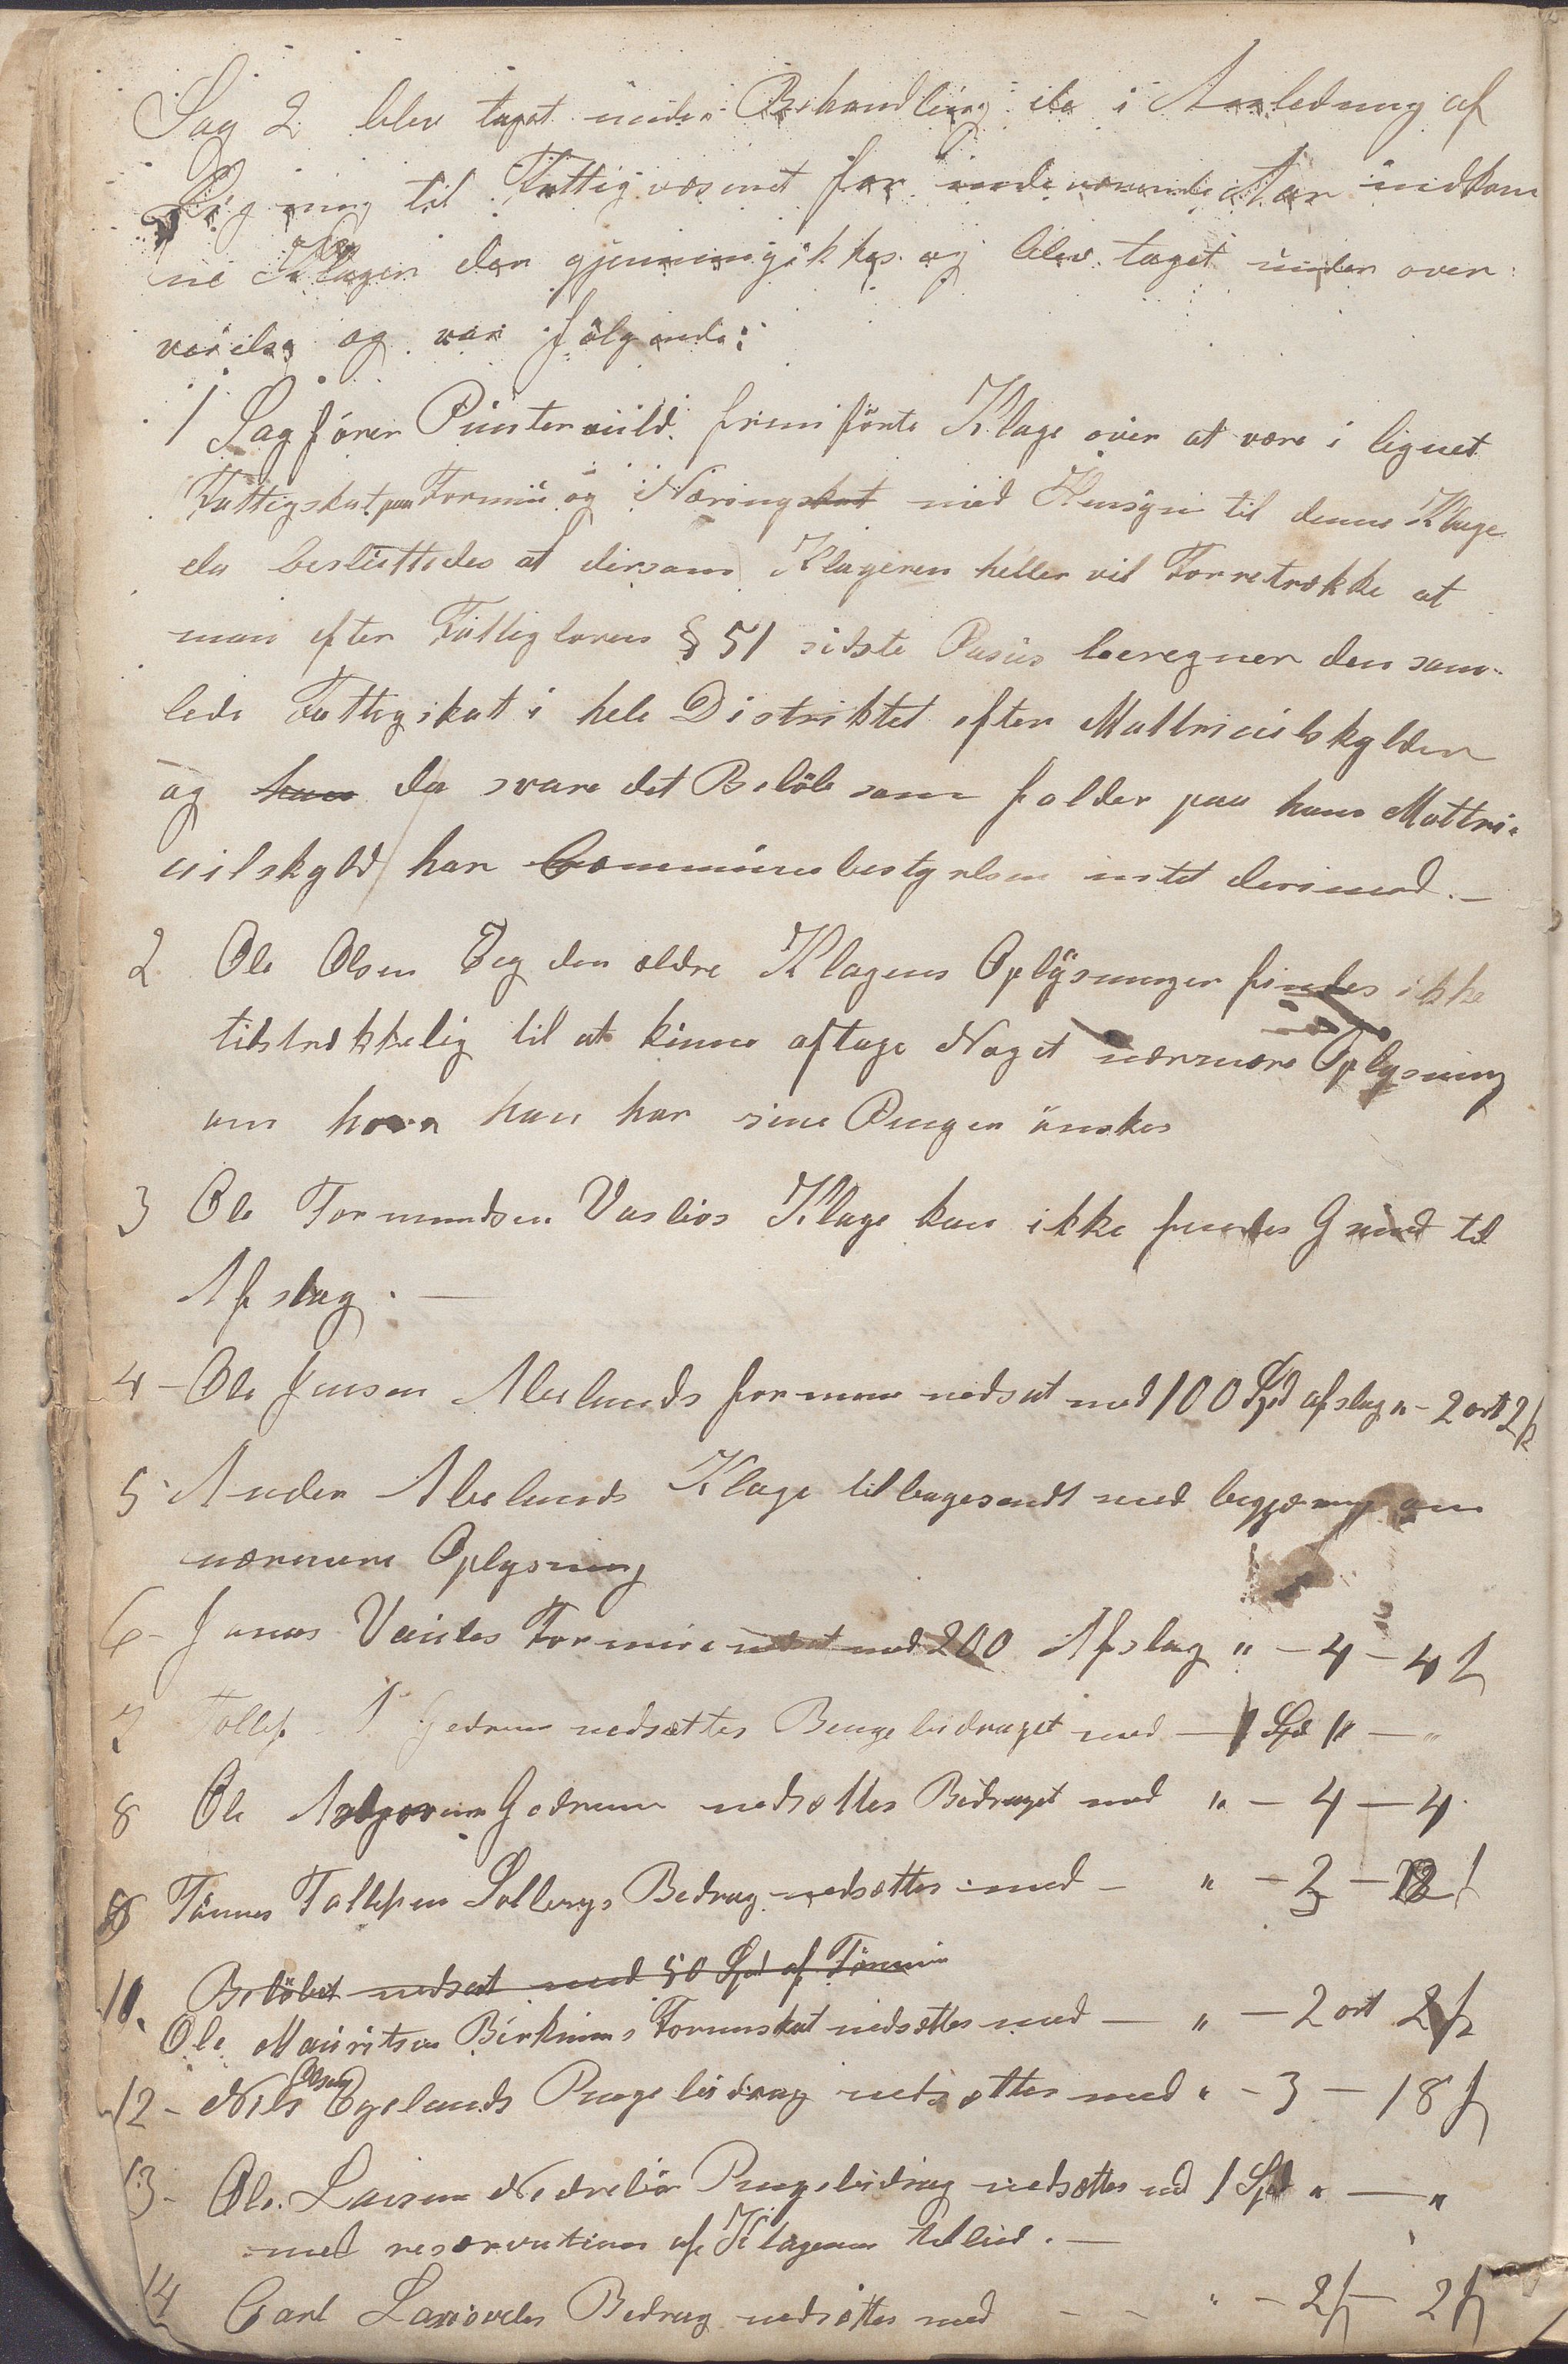 Sag 2 blev taget under Behandling da i Anledning af
Ligning til Fattigvæsenet for indeværende Aar indkom
ne Klager der gjennemgikkes og blev taget under over
veielse og var følgende:
1 Sagfører Puntervold fremførte Klage over at være i lignet
Fattigskat paa Formue og Næringskat med Hensyn til denne Klage
da besluttedes at dersom Klageren heller vil Forretrække at
man efter Fattiglovens § 51 sidste Pasus beregner den sam-
lede Fattigskat i hele Distriktet efter Mattriculskylden
og da svare det Beløb som falder paa hans Mattri-
culskyld har Communebestyrelsen intet derimod. —
2 Ole Olsen Eeg den ældre Klagens Oplysninger findes ikke
tilstrækkelig til at kunne aftage Noget nærmere Oplysning
om hvor han har sine Penger ønskes
3 Ole Tormundsen Vaslios Klage kan ikke findes Grund til
Afslag. —
4 - Ole Jensen Abelands formue nedsat med 100 Spd afslag " - 2 ort 2 s
5 Anders Abelands Klage tilbagesendt med begjæring om
nærmere Oplysning
6 - Jonas Formue nedsat med 200 Afslag " - 4 - 4 s
7 Tollef T Gedrem nedsættes Bengebidraget med — 1 Spd " — "
8 Ole Gedrem nedsættes Bidraget med " - 4 - 4
9 Tønnes Tollefsen Solbergs Bedrag nedsættes med - " - 3 - 18 s
10. Beløbet nedsat med 50 Spd af Formue
Ole Mauritsen Birkrems Formuskat nedsættes med — " — 2 ort 2 s
12 - Nils Olsen Egelands Pengebidrag nedsættes med " - 3 - 18 s
13 - Ole Larsen Nedrebø Pengebidrag nedsættes ved 1 Spd " — "
med reservation af Klagerens tillid. —
14 Carl Bedrag nedsættes med - - " - 2 s - 2 s